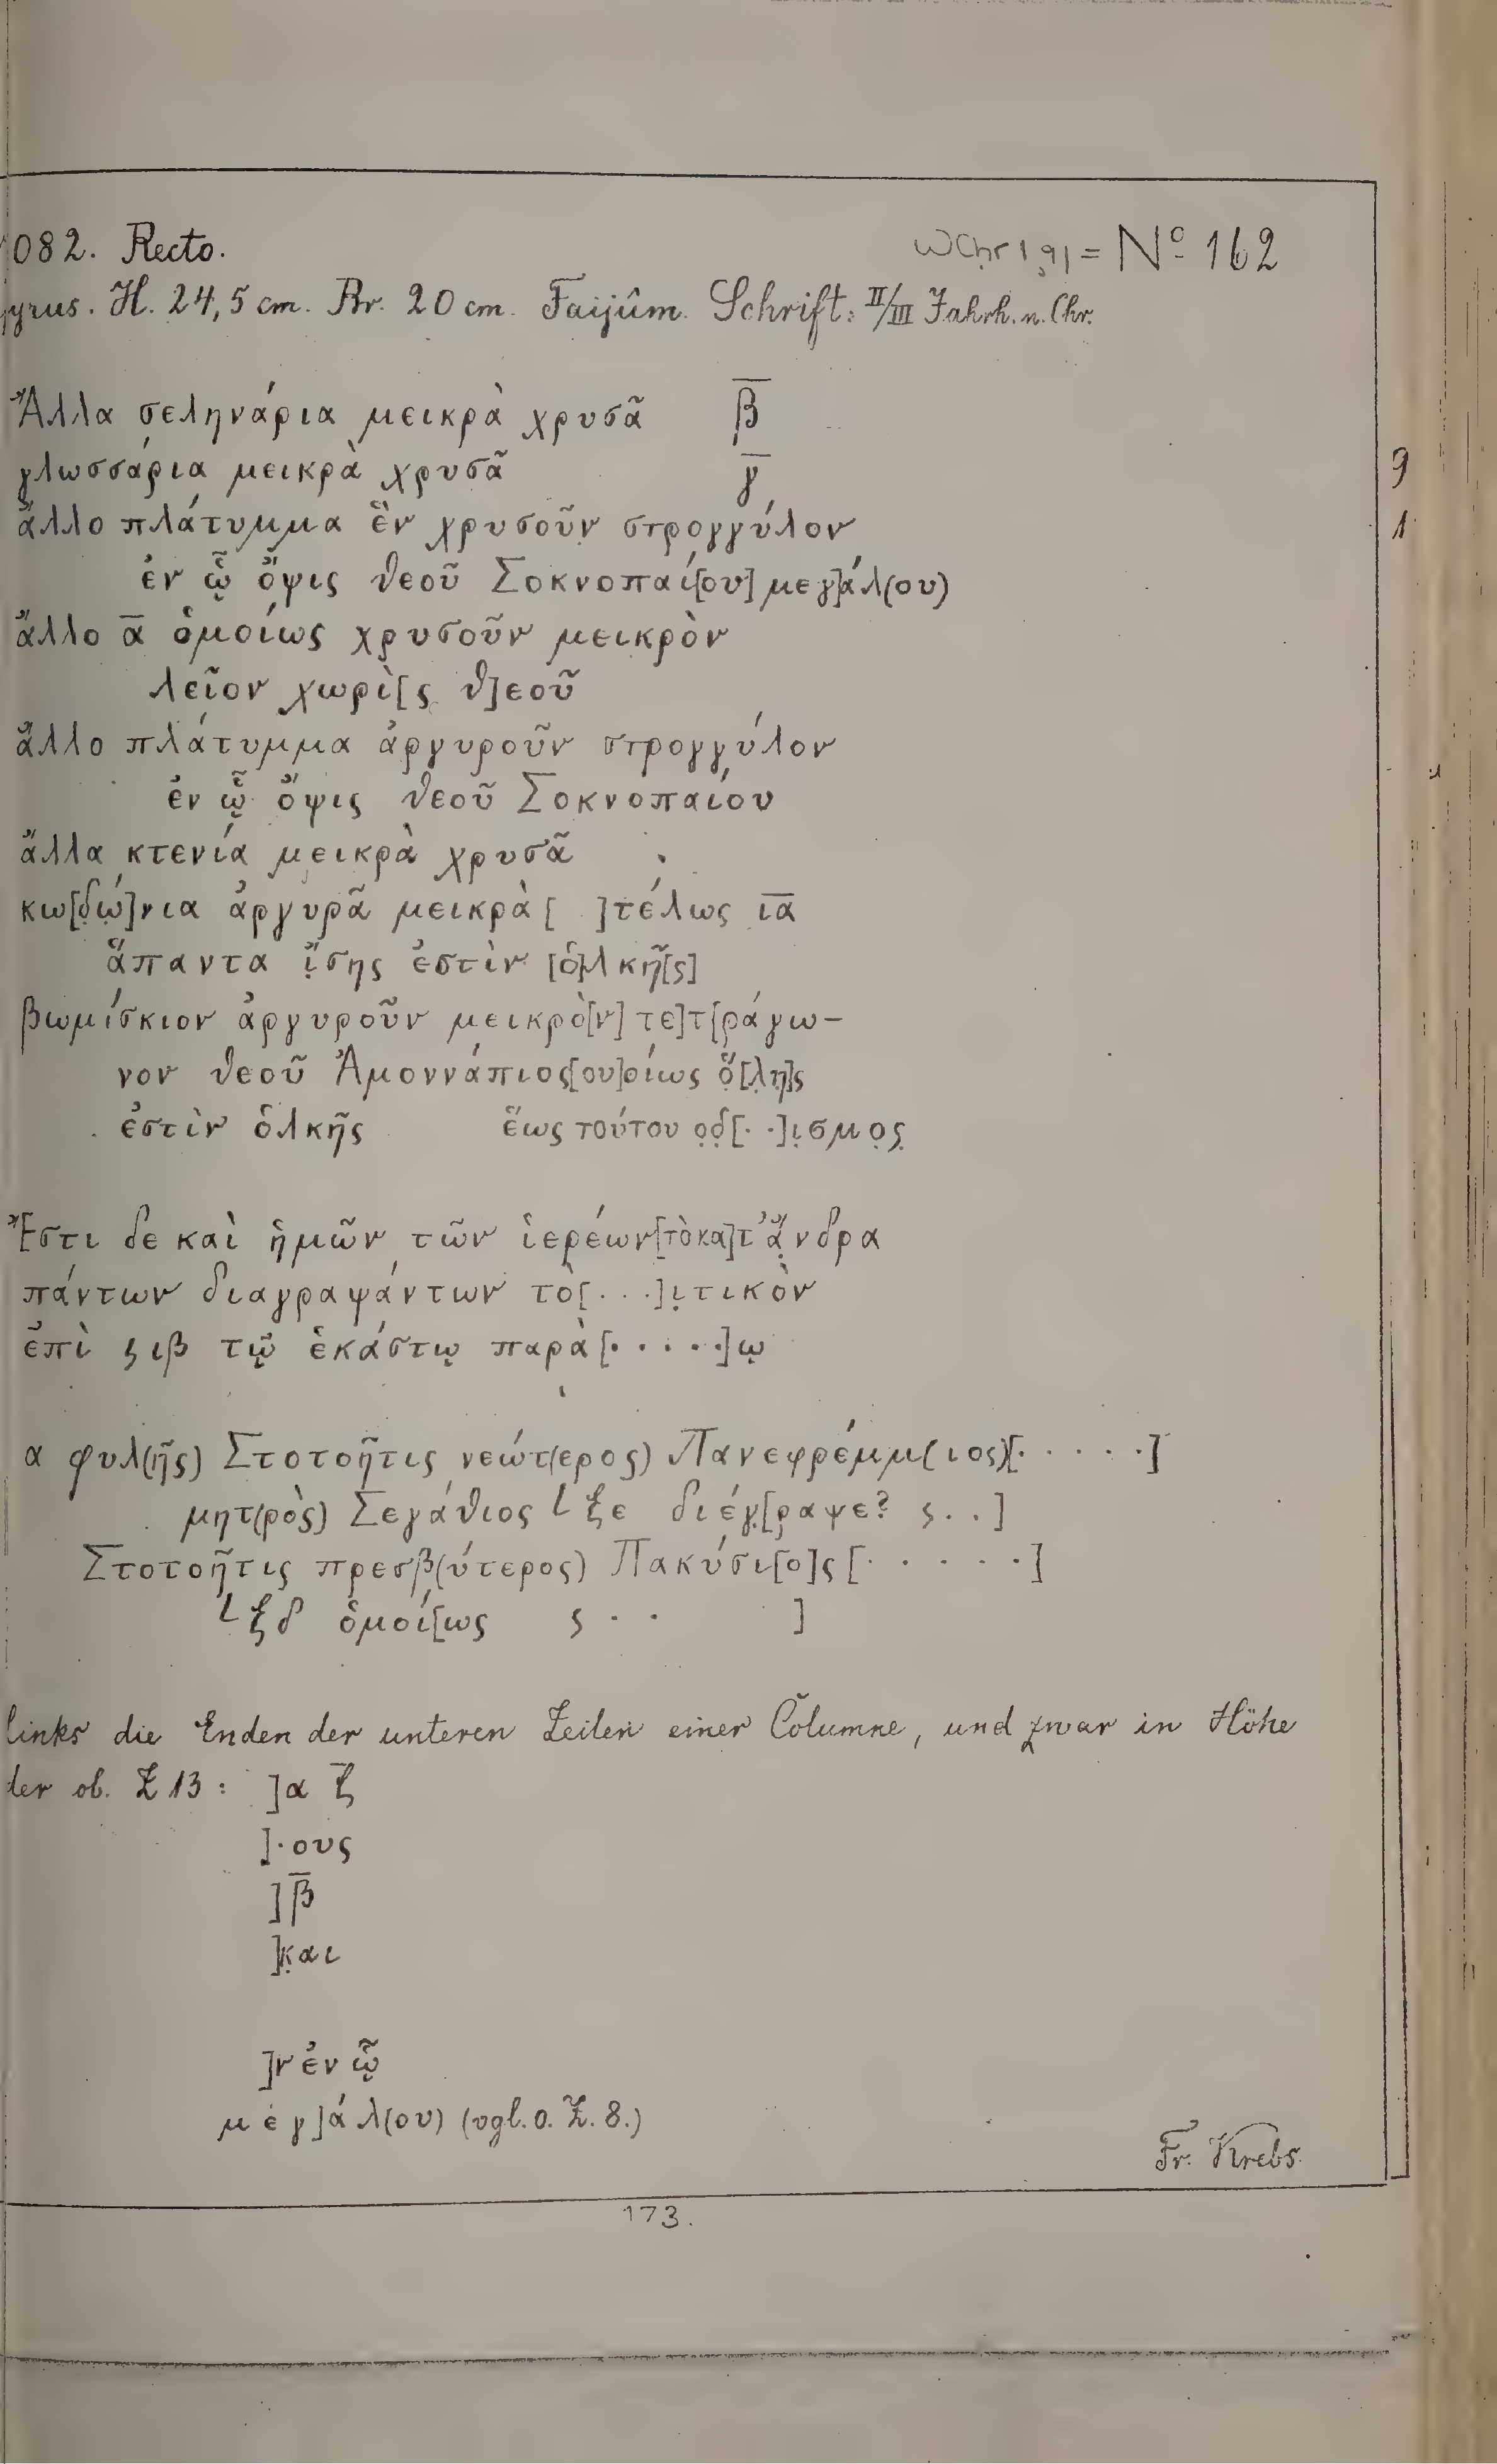 082. Recto. WChr I, 91 = Nº 162
yrus. H. 24,5 cm. Br. 20 cm. Faijûm. Schrift: II/III Jahrh. n. Chr.
Ἄλλα σεληνάρια μεικρὰ χρυσᾶ β̅
γλωσσάρια μεικρὰ χρυσᾶ γ̅
ἄλλο πλάτυμμα ἓν χρυσοῦν στρογγύλον
ἐν ᾧ ὄψις θεοῦ Σοκνοπαί[ου] μεγ]άλ(ου)
ἄλλο α̅ ὁμοίως χρυσοῦν μεικρὸν
λεῖον χωρὶ[ς θ]εοῦ
ἄλλο πλάτυμμα ἀργυροῦν στρογγύλον
ἐν ᾧ ὄψις θεοῦ Σοκνοπαίου
ἄλλα κτενία μεικρὰ χρυσᾶ
κω[δώ]νια ἀργυρᾶ μεικρὰ [ ]τέλως ι̅α̅
ἅπαντα ἴσης ἐστὶν [ὁ]λκῆ[ς]
βωμίσκιον ἀργυροῦν μεικρὸ[ν] τε]τ[ράγω-
νον θεοῦ Ἀμοννάπιος[ου]οίως ὅ[λη]ς
ἐστὶν ὁλκῆς ἕως τούτου ο̣δ̣[··]ι̣σμο̣ς̣
Ἔστι δε καὶ ἡμῶν τῶν ἱερέων[τὸ κα]τ᾽ ἄ̣νδρα
πάντων διαγραψάντων τὸ[···]ι̣τικὸν
ἐπὶ ϛ ιβ τῷ ἑκάστῳ παρὰ [·····]ῳ
α φυλ(ῆς) Στοτοῆτις νεώτ(ερος) Πανεφρέμμ(ιος)[·····]
μητ(ρὸς) Σεγάθιος L ξε διέγ̣[ραψε? ϛ..]
Στοτοῆτις πρεσβ(ύτερος) Πακύσι[ο]ς [·····]
L ξδ ὁμοί[ως ϛ ·· ]
links die Enden der unteren Zeilen einer Columne, und zwar in Höhe
der ob. Z 13: ]α ζ̅
]·ους
]β̅
]κ̣αι
]ν ἐν ᾧ
μεγ]άλ(ου) (vgl. o. Z. 8.)
Fr. Krebs.
173.
9
1